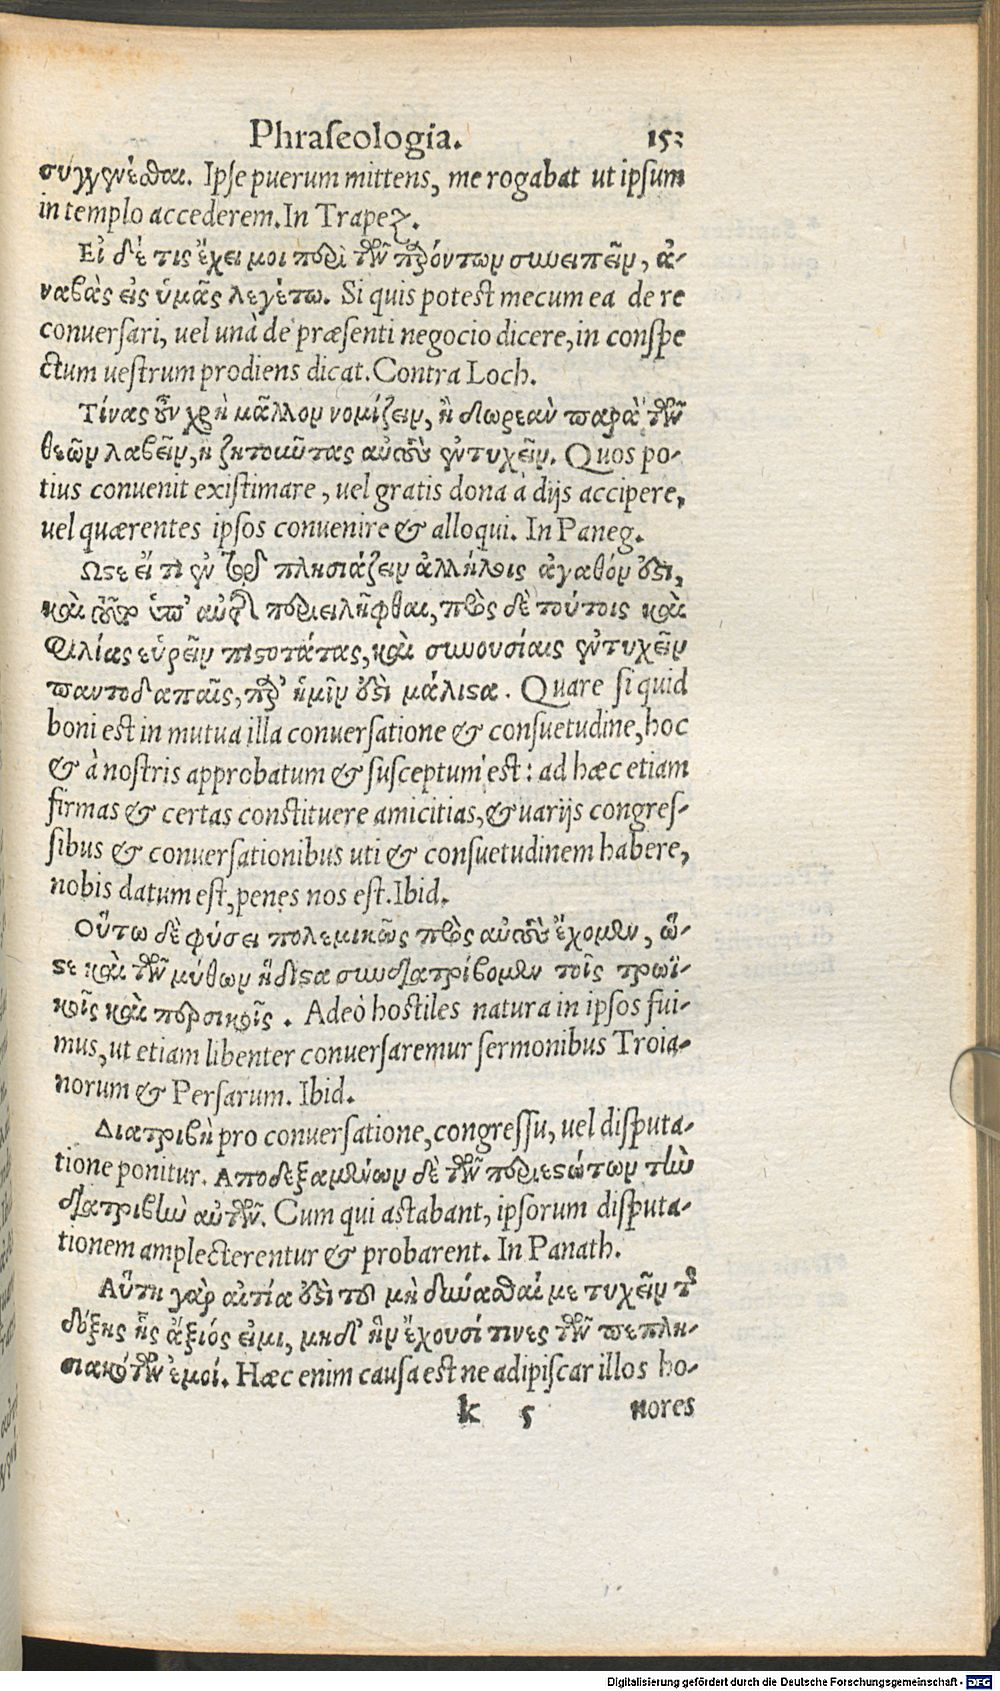 Phraseologia. 153
συγγενέσθαι. Ipse puerum mittens, me rogabat ut ipsum
in templo accederem. In Trapez.
Εἰ δέ τις ἔχει μοι περὶ τῶν παρόντων συνειπεῖν, ἀ-
ναβὰς εἰς ὑμᾶς λεγέτω. Si quis potest mecum ea de re
conversari, vel unà de præsenti negocio dicere, in conspe
ctum uestrum prodiens dicat. Contra Loch.
Τίνας οὖν χρὴ μᾶλλον νομίζειν, ἢ δωρεὰν παρὰ τῶν
θεῶν λαβεῖν, ἢ ζητοῦντας αὐτοὺς ἐντυχεῖν. Quos po-
tius convenit existimare, vel gratis dona à dijs accipere,
vel quærentes ipsos convenire & alloqui. In Paneg.
Ωστε εἴ τι ἐν τῷ πλησιάζειν ἀλλήλοις ἀγαθόν ἐστι,
καὶ τοῦθ' ὑπ' αὐτῆς περιειλῆφθαι, πρὸς δὲ τούτοις καὶ
φιλίας εὑρεῖν πιστοτάτας, καὶ συνουσίαις ἐντυχεῖν
παντοδαπαῖς, παρ' ἡμῖν ἐστὶ μάλιστα. Quare si quid
boni est in mutua illa conversatione & consuetudine, hoc
& à nostris approbatum & susceptum est: ad hæc etiam
firmas & certas constituere amicitias, & uarijs congres-
sibus & conversationibus uti & consuetudinem habere,
nobis datum est, penes nos est. Ibid.
Οὕτω δὲ φύσει πολεμικῶς πρὸς αὐτοὺς ἔχομεν, ὥ-
στε καὶ τῶν μύθων ἥδιστα συνδιατρίβομεν τοῖς τρωϊ-
κοῖς καὶ περσικοῖς. Adeò hostiles natura in ipsos fui-
mus, ut etiam libenter conversaremur sermonibus Troia-
norum & Persarum. Ibid.
Διατριβὴ pro conversatione, congressu, vel disputa-
tione ponitur. Αποδεξαμένων δὲ τῶν περιεστώτων τὴν
διατριβὴν αὐτῶν. Cum qui astabant, ipsorum disputa-
tionem amplecterentur & probarent. In Panath.
Αὕτη γὰρ αἰτία ἐστὶ τοῦ μὴ δύνασθαί με τυχεῖν τῆς
δόξης ἧς ἄξιός εἰμι, μηδ' ἣν ἔχουσί τινες τῶν πεπλη-
σιακότων ἐμοί. Hæc enim causa est ne adipiscar illos ho-
k 5 nores
Digitalisierung gefördert durch die Deutsche Forschungsgemeinschaft - DFG